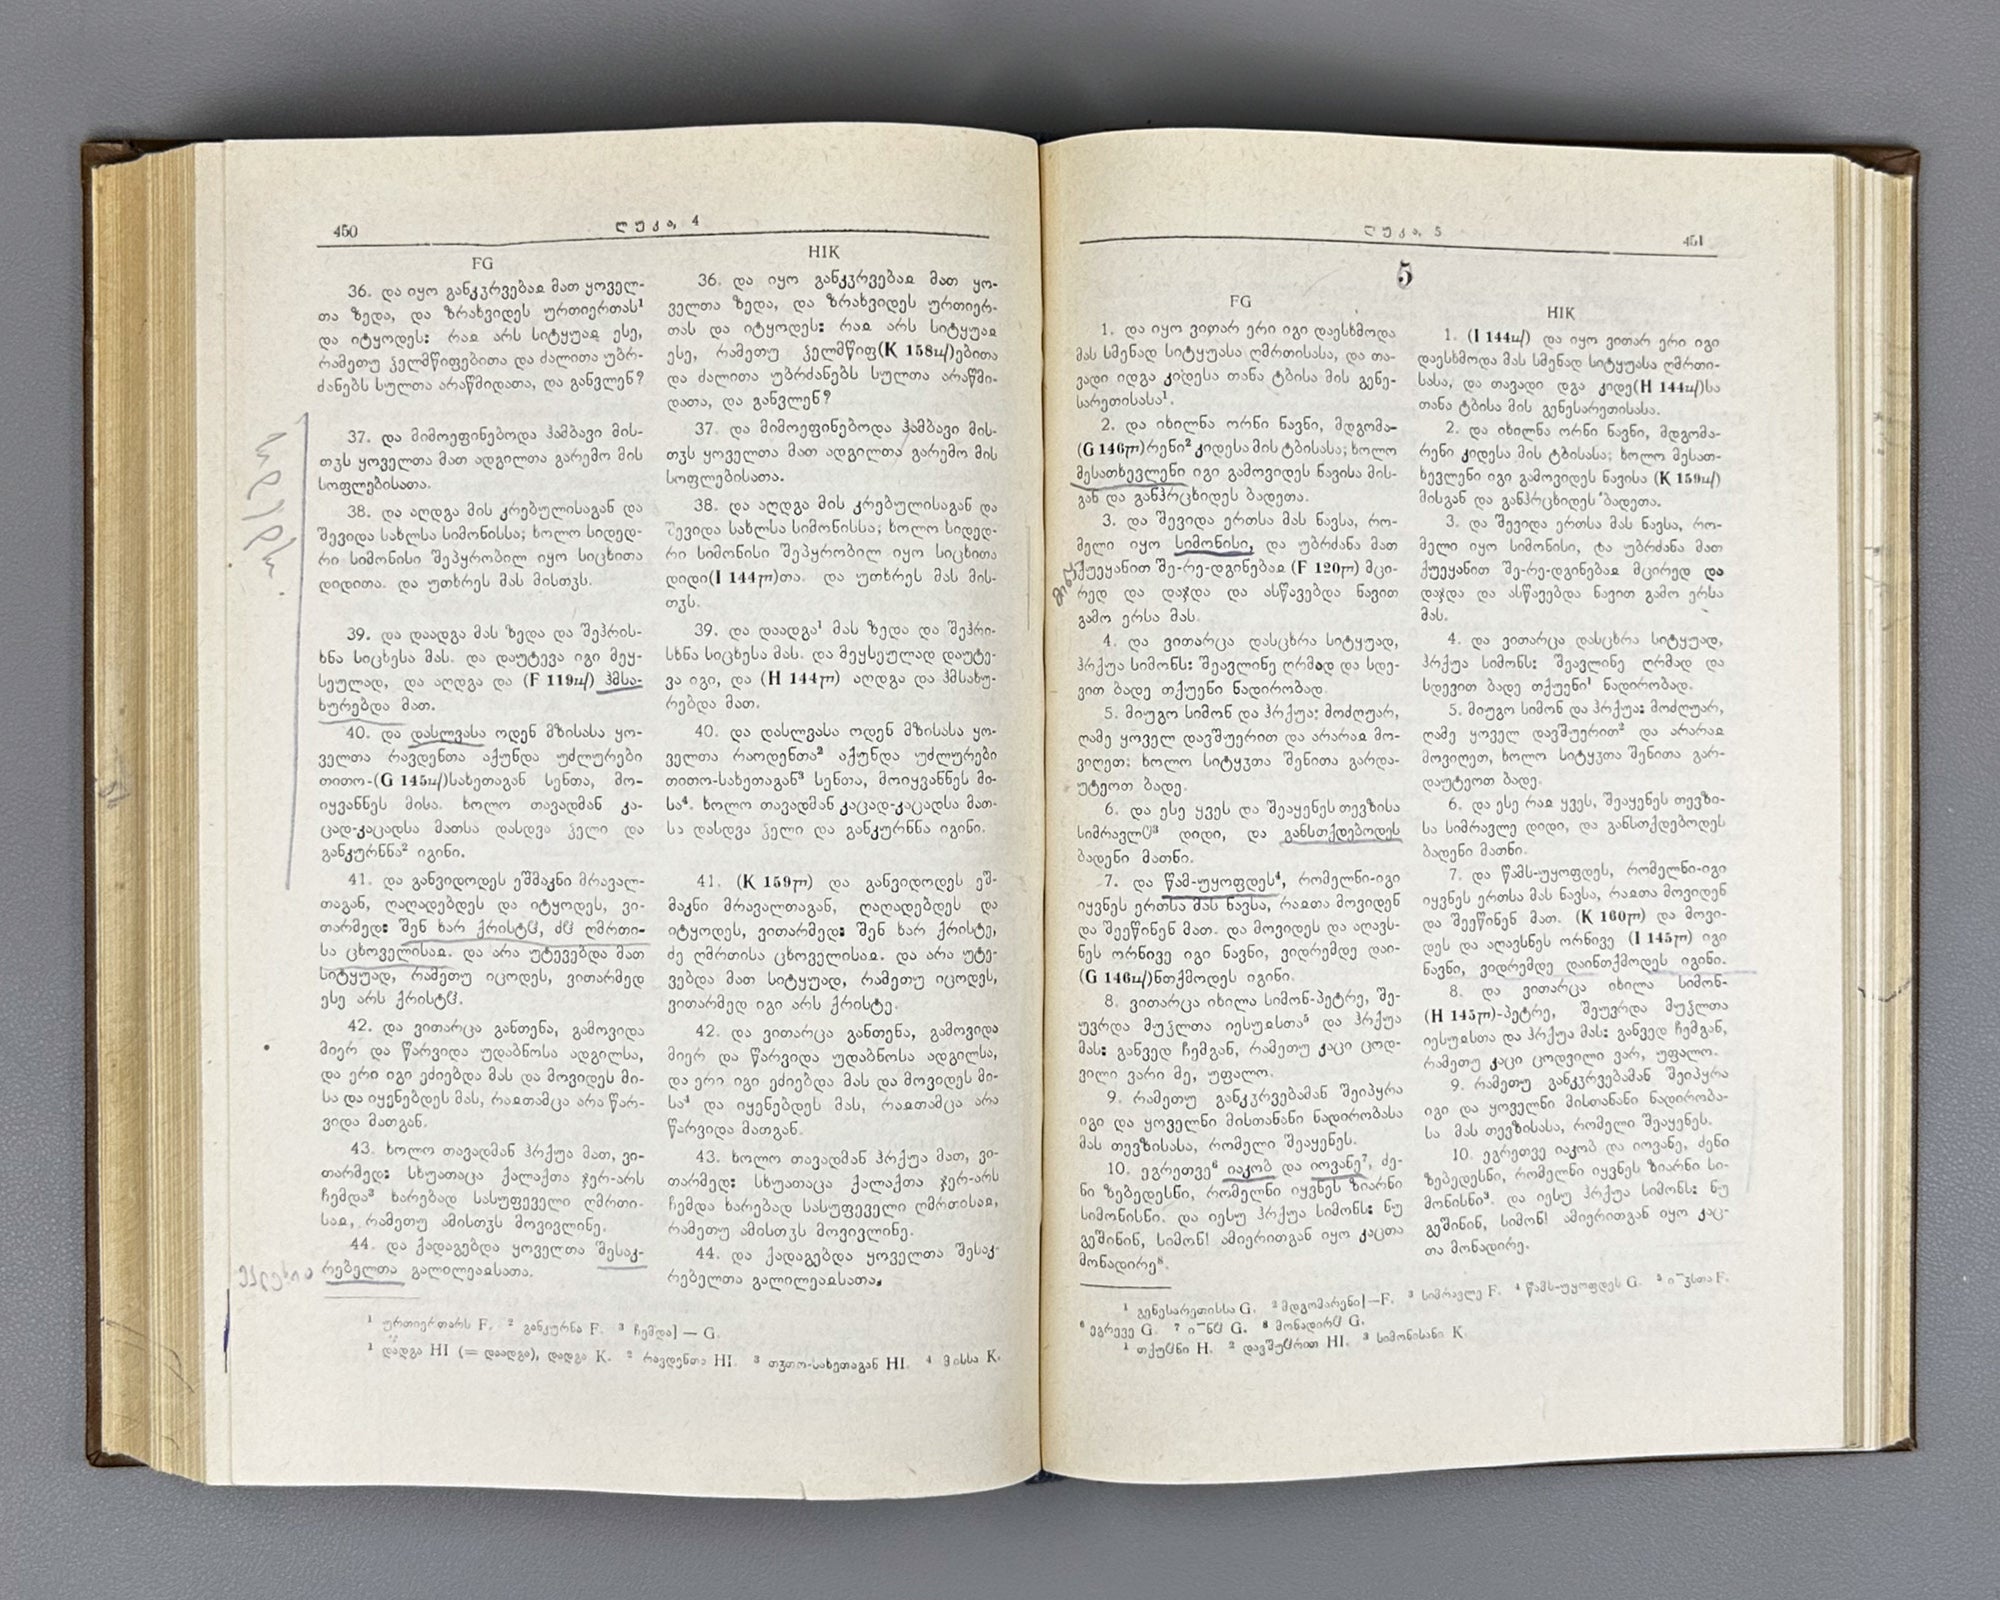 450
ლუკა, 4
FG
36. და იყო განკჳრვებაჲ მათ ყოველ-
თა ზედა, და ზრახვიდეს ურთიერთას¹
და იტყოდეს: რაჲ არს სიტყუაჲ ესე,
რამეთუ ჴელმწიფებითა და ძალითა უბრ-
ძანებს სულთა არაწმიდათა, და განვლენ?
37. და მიმოეფინებოდა ჰამბავი მის-
თჳს ყოველთა მათ ადგილთა გარემო მის
სოფლებისათა.
38. და აღდგა მის კრებულისაგან და
შევიდა სახლსა სიმონისსა; ხოლო სიდედ-
რი სიმონისი შეპყრობილ იყო სიცხითა
დიდითა. და უთხრეს მას მისთჳს.
39. და დაადგა მას ზედა და შეჰრის-
ხნა სიცხესა მას. და დაუტევა იგი მეყ-
სეულად, და აღდგა და (F 119v) ჰმსა-
ხურებდა მათ.
40. და დასლვასა ოდენ მზისასა ყო-
ველთა რავდენთა აქუნდა უძლურები
თითო-(G 145v)სახეთაგან სენთა, მო-
იყვანნეს მისა. ხოლო თავადმან კა-
ცად-კაცადსა მათსა დასდვა ჴელი და
განკურნნა² იგინი.
41. და განვიდოდეს ეშმაკნი მრავალ-
თაგან, ღაღადებდეს და იტყოდეს, ვი-
თარმედ: შენ ხარ ქრისტჱ, ძჱ ღმრთი-
სა ცხოველისაჲ. და არა უტევებდა მათ
სიტყუად, რამეთუ იცოდეს, ვითარმედ
ესე არს ქრისტჱ.
42. და ვითარცა განთენა, გამოვიდა
მიერ და წარვიდა უდაბნოსა ადგილსა,
და ერი იგი ეძიებდა მას და მოვიდეს მი-
სა და იყენებდეს მას, რაჲთამცა არა წარ-
ვიდა მათგან.
43. ხოლო თავადმან ჰრქუა მათ, ვი-
თარმედ: სხუათაცა ქალაქთა ჯერ-არს
ჩემდა³ ხარებად სასუფეველი ღმრთი-
საჲ, რამეთუ ამისთჳს მოვივლინე.
44. და ქადაგებდა ყოველთა შესაკ-
რებელთა გალილეაჲსათა.
HIK
36. და იყო განკჳრვებაჲ მათ ყო-
ველთა ზედა, და ზრახვიდეს ურთიერ-
თას და იტყოდეს: რაჲ არს სიტყუაჲ
ესე, რამეთუ ჴელმწიფ(K 158v)ებითა
და ძალითა უბრძანებს სულთა არაწმი-
დათა, და განვლენ?
37. და მიმოეფინებოდა ჰამბავი მის-
თჳს ყოველთა მათ ადგილთა გარემო მის
სოფლებისათა.
38. და აღდგა მის კრებულისაგან და
შევიდა სახლსა სიმონისსა; ხოლო სიდედ-
რი სიმონისი შეპყრობილ იყო სიცხითა
დიდი(I 144r)თა. და უთხრეს მას მის-
თჳს.
39. და დაადგა¹ მას ზედა და შეჰრი-
სხნა სიცხესა მას. და მეყსეულად დაუტე-
ვა იგი, და (H 144r) აღდგა და ჰმსახუ-
რებდა მათ.
40. და დასლვასა ოდენ მზისასა ყო-
ველთა რაოდენთა² აქუნდა უძლურები
თითო-სახეთაგან³ სენთა, მოიყვანნეს მი-
სა⁴. ხოლო თავადმან კაცად-კაცადსა მათ-
სა დასდვა ჴელი და განკურნნა იგინი.
41. (K 159r) და განვიდოდეს ეშ-
მაკნი მრავალთაგან, ღაღადებდეს და
იტყოდეს, ვითარმედ: შენ ხარ ქრისტე,
ძე ღმრთისა ცხოველისაჲ. და არა უტე-
ვებდა მათ სიტყუად, რამეთუ იცოდეს,
ვითარმედ იგი არს ქრისტე.
42. და ვითარცა განთენა, გამოვიდა
მიერ და წარვიდა უდაბნოსა ადგილსა,
და ერი იგი ეძიებდა მას და მოვიდეს მი-
სა⁴ და იყენებდეს მას, რაჲთამცა არა
წარვიდა მათგან.
43. ხოლო თავადმან ჰრქუა მათ, ვი-
თარმედ: სხუათაცა ქალაქთა ჯერ-არს
ჩემდა ხარებად სასუფეველი ღმრთისაჲ,
რამეთუ ამისთჳს მოვივლინე.
44. და ქადაგებდა ყოველთა შესაკ-
რებელთა გალილეაჲსათა.
¹ ურთიერთარს F. ² განკურნა F. ³ ჩემდა] — G.
¹ დადგა HI (= დაადგა), დადგა K. ² რავდენთა HI. ³ თჳთო-სახეთაგან HI. ⁴ მისსა K.
ლუკა, 5
451
5
FG
1. და იყო ვითარ ერი იგი დაესხმოდა
მას სმენად სიტყუასა ღმრთისასა, და თა-
ვადი იდგა კიდესა თანა ტბისა მის გენე-
სარეთისასა¹.
2. და იხილნა ორნი ნავნი, მდგომა-
(G 146r)რენი² კიდესა მის ტბისასა; ხოლო
მესათხევლენი იგი გამოვიდეს ნავისა მის-
გან და განჰრცხიდეს ბადეთა.
3. და შევიდა ერთსა მას ნავსა, რო-
მელი იყო სიმონისი, და უბრძანა მათ
ქუეყანით შე-რე-დგინებაჲ (F 120r) მცი-
რედ და დაჯდა და ასწავებდა ნავით
გამო ერსა მას.
4. და ვითარცა დასცხრა სიტყუად,
ჰრქუა სიმონს: შეავლინე ღრმად და სდე-
ვით ბადე თქუენი ნადირობად.
5. მიუგო სიმონ და ჰრქუა: მოძღუარ,
ღამე ყოველ დავშუერით და არარაჲ მო-
ვიღეთ; ხოლო სიტყჳთა შენითა გარდა-
უტეოთ ბადე.
6. და ესე ყვეს და შეაყენეს თევზისა
სიმრავლჱ³ დიდი, და განსთქდებოდეს
ბადენი მათნი.
7. და წამ-უყოფდეს⁴, რომელნი-იგი
იყვნეს ერთსა მას ნავსა, რაჲთა მოვიდენ
და შეეწინენ მათ. და მოვიდეს და აღავს-
ნეს ორნივე იგი ნავნი, ვიდრემდე დაი-
(G 146v)ნთქმოდეს იგინი.
8. ვითარცა იხილა სიმონ-პეტრე, შე-
უვრდა მუჴლთა იესუჲსთა⁵ და ჰრქუა
მას: განვედ ჩემგან, რამეთუ კაცი ცოდ-
ვილი ვარი მე, უფალო.
9. რამეთუ განკჳრვებამან შეიპყრა
იგი და ყოველნი მისთანანი ნადირობასა
მას თევზისასა, რომელი შეაყენეს.
10. ეგრეთვე⁶ იაკობ და იოვანე⁷, ძე-
ნი ზებედესნი, რომელნი იყვნეს ზიარნი
სიმონისნი. და იესუ ჰრქუა სიმონს: ნუ
გეშინინ, სიმონ! ამიერითგან იყო კაცთა
მონადირე⁸.
HIK
1. (I 144v) და იყო ვითარ ერი იგი
დაესხმოდა მას სმენად სიტყუასა ღმრთი-
სასა, და თავადი დგა კიდე(H 144v)სა
თანა ტბისა მის გენესარეთისასა.
2. და იხილნა ორნი ნავნი, მდგომა-
რენი კიდესა მის ტბისასა; ხოლო მესათ-
ხევლენი იგი გამოვიდეს ნავისა (K 159v)
მისგან და განჰრცხიდეს ბადეთა.
3. და შევიდა ერთსა მას ნავსა, რო-
მელი იყო სიმონისი, და უბრძანა მათ
ქუეყანით შე-რე-დგინებაჲ მცირედ და
დაჯდა და ასწავებდა ნავით გამო ერსა
მას.
4. და ვითარცა დასცხრა სიტყუად,
ჰრქუა სიმონს: შეავლინე ღრმად და
სდევით ბადე თქუენი¹ ნადირობად.
5. მიუგო სიმონ და ჰრქუა: მოძღუარ,
ღამე ყოველ დავშუერით² და არარაჲ
მოვიღეთ, ხოლო სიტყჳთა შენითა გარ-
დაუტეოთ ბადე.
6. და ესე რაჲ ყვეს, შეაყენეს თევზი-
სა სიმრავლე დიდი, და განსთქდებოდეს
ბადენი მათნი.
7. და წამს-უყოფდეს, რომელნი-იგი
იყვნეს ერთსა მას ნავსა, რაჲთა მოვიდენ
და შეეწინენ მათ. (K 160r) და მოვი-
დეს და აღავსნეს ორნივე (I 145r) იგი
ნავნი, ვიდრემდე დაინთქმოდეს იგინი.
8. და ვითარცა იხილა სიმონ-
(H 145r)-პეტრე, შეუვრდა მუჴლთა
იესუჲსთა და ჰრქუა მას: განვედ ჩემგან,
რამეთუ კაცი ცოდვილი ვარ, უფალო.
9. რამეთუ განკჳრვებამან შეიპყრა
იგი და ყოველნი მისთანანი ნადირობა-
სა მას თევზისასა, რომელი შეაყენეს.
10. ეგრეთვე იაკობ და იოვანე, ძენი
ზებედესნი, რომელნი იყვნეს ზიარნი სი-
მონისნი³. და იესუ ჰრქუა სიმონს: ნუ
გეშინინ, სიმონ! ამიერითგან იყო კაც-
თა მონადირე.
¹ გენესარეთისსა G. ² მდგომარენი] — F. ³ სიმრავლე F. ⁴ წამს-უყოფდეს G. ⁵ ი˜ჳსთა F.
⁶ ეგრევე G. ⁷ ი˜ნჱ G. ⁸ მონადირჱ G.
¹ თქუჱნი H. ² დავშუჱრით HI. ³ სიმონისანი K.